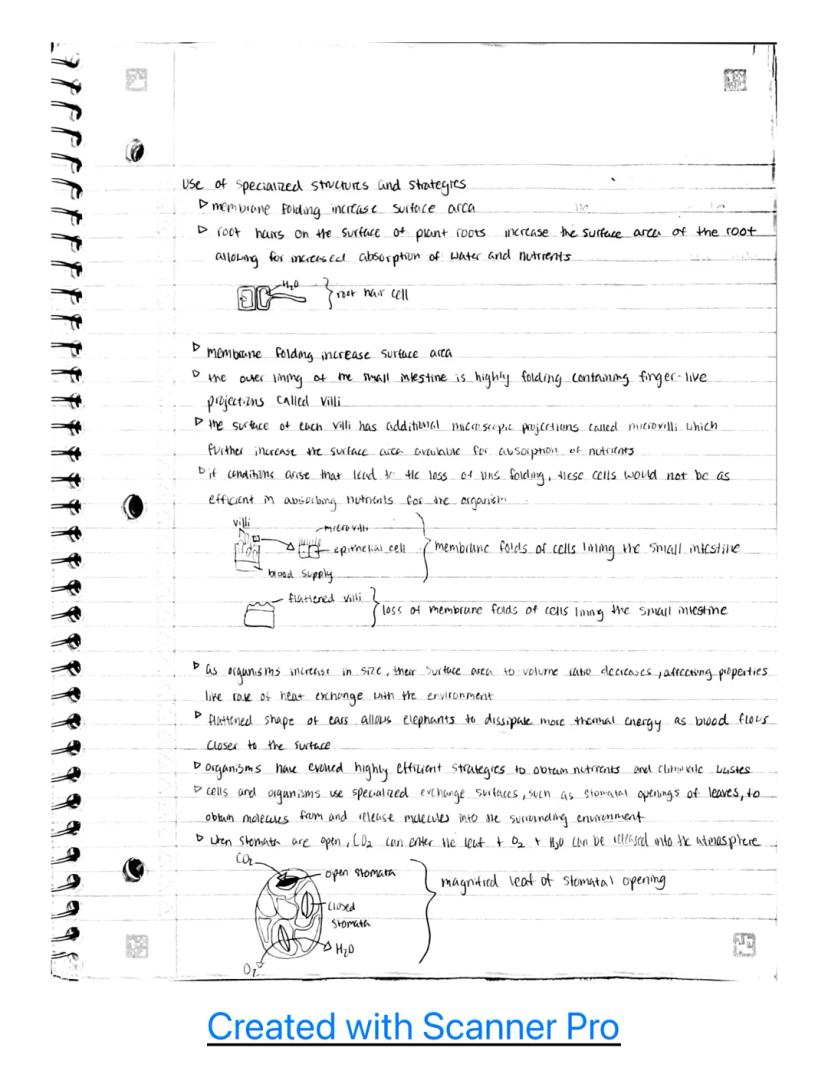 Use of specialized structures and strategies
▷ membrane folding increase surface area
▷ root hairs on the surface of plant roots increase the surface area of the root
allowing for increased absorption of water and nutrients
H₂O
root hair cell
▷ membrane folding increase surface area
▷ the outer lining of the small intestine is highly folding containing finger-live
projections called villi
▷ the surface of each villi has additional microscopic projections called microvilli which
further increase the surface area available for absorption of nutrients
▷ if conditions arise that lead to the loss of this folding, these cells would not be as
efficient in absorbing nutrients for the organism
villi
microvilli
epithelial cell
membrane folds of cells lining the small intestine
blood supply
flattened villi
loss of membrane folds of cells lining the small intestine
▷ as organisms increase in size, their surface area to volume ratio decreases, affecting properties
like rate of heat exchange with the environment
▷ flattened shape of ears allows elephants to dissipate more thermal energy as blood flows
closer to the surface
▷ organisms have evolved highly efficient strategies to obtain nutrients and eliminate wastes
▷ cells and organisms use specialized exchange surfaces, such as stomatal openings of leaves, to
obtain molecules from and release molecules into the surrounding environment
▷ when stomata are open, CO₂ can enter the leaf + O₂ + H₂O can be released into the atmosphere
CO₂
open stomata
magnified leaf of stomatal opening
closed
stomata
H₂O
O₂
Created with Scanner Pro